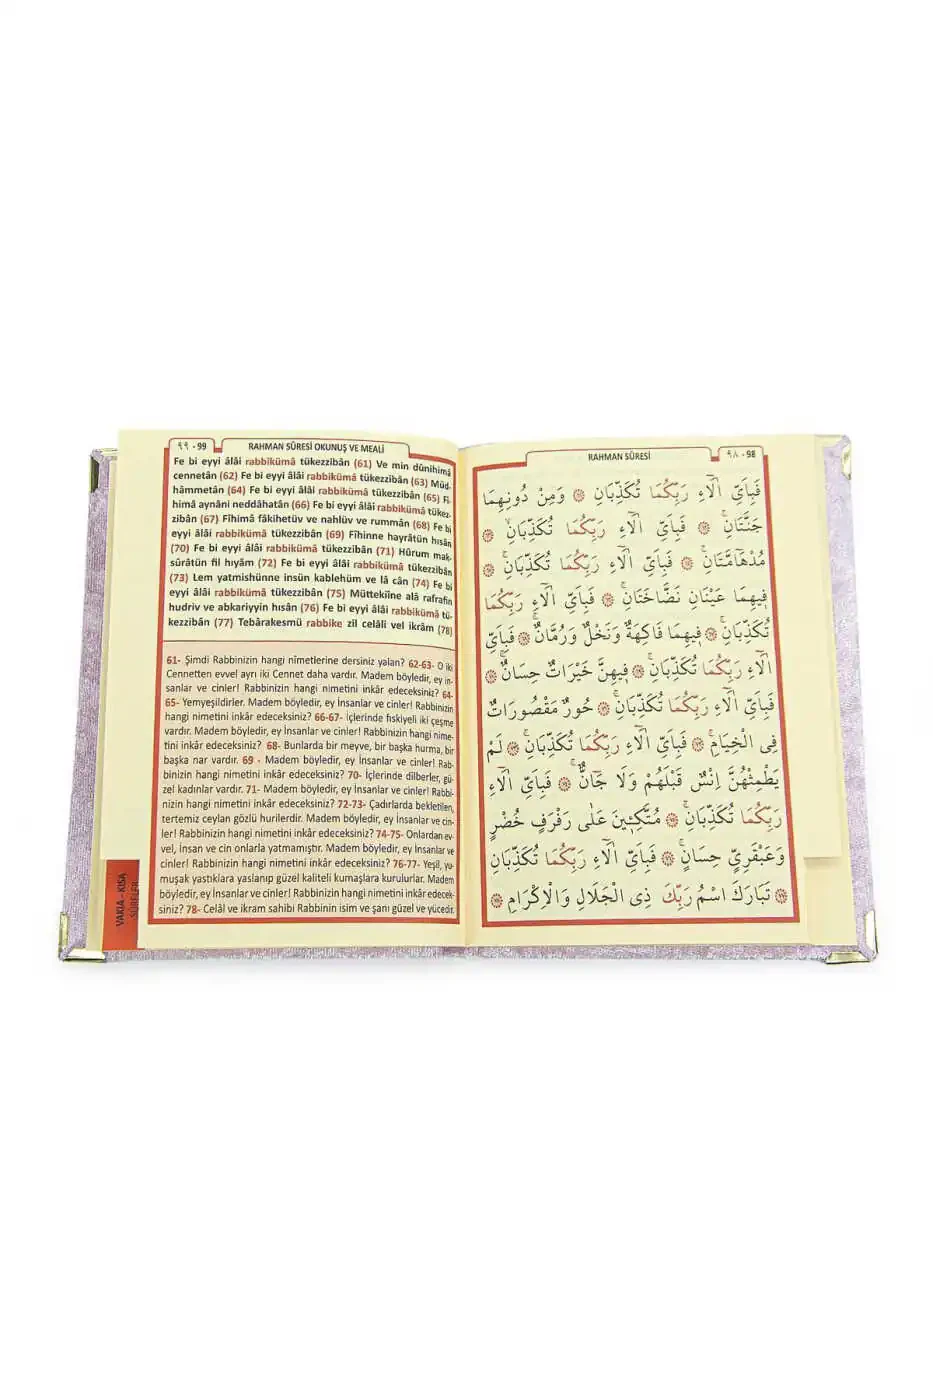 ٩٩ - 99
RAHMAN SÛRESİ OKUNUŞ VE MEALİ
Fe bi eyyi âlâi rabbikümâ tükezzibân (61) Ve min dûnihimâ
cennetân (62) Fe bi eyyi âlâi rabbikümâ tükezzibân (63) Müd-
hâmmetân (64) Fe bi eyyi âlâi rabbikümâ tükezzibân (65) Fî-
himâ aynâni neddâhatân (66) Fe bi eyyi âlâi rabbikümâ tükez-
zibân (67) Fîhimâ fâkihetüv ve nahlüv ve rummân (68) Fe bi
eyyi âlâi rabbikümâ tükezzibân (69) Fîhinne hayrâtün hısân
(70) Fe bi eyyi âlâi rabbikümâ tükezzibân (71) Hûrum mak-
sûrâtün fil hıyâm (72) Fe bi eyyi âlâi rabbikümâ tükezzibân
(73) Lem yatmishünne insün kablehüm ve lâ cân (74) Fe bi
eyyi âlâi rabbikümâ tükezzibân (75) Müttekiîne alâ rafrafin
hudriv ve abkariyyin hısân (76) Fe bi eyyi âlâi rabbikümâ tü-
kezzibân (77) Tebârakesmü rabbike zil celâli vel ikrâm (78)
61- Şimdi Rabbinizin hangi nîmetlerine dersiniz yalan? 62-63- O iki
Cennetten evvel ayrı iki Cennet daha vardır. Madem böyledir, ey in-
sanlar ve cinler! Rabbinizin hangi nimetini inkâr edeceksiniz? 64-
65- Yemyeşildirler. Madem böyledir, ey İnsanlar ve cinler! Rabbinizin
hangi nimetini inkâr edeceksiniz? 66-67- İçlerinde fıskiyeli iki çeşme
vardır. Madem böyledir, ey İnsanlar ve cinler! Rabbinizin hangi nime-
tini inkâr edeceksiniz? 68- Bunlarda bir meyve, bir başka hurma, bir
başka nar vardır. 69 - Madem böyledir, ey İnsanlar ve cinler! Rab-
binizin hangi nimetini inkâr edeceksiniz? 70- İçlerinde dilberler, gü-
zel kadınlar vardır. 71- Madem böyledir, ey İnsanlar ve cinler! Rabbi-
nizin hangi nimetini inkâr edeceksiniz? 72-73- Çadırlarda bekletilen,
tertemiz ceylan gözlü hurilerdir. Madem böyledir, ey İnsanlar ve cin-
ler! Rabbinizin hangi nimetini inkâr edeceksiniz? 74-75- Onlardan ev-
vel, İnsan ve cin onlarla yatmamıştır. Madem böyledir, ey İnsanlar ve
cinler! Rabbinizin hangi nimetini inkâr edeceksiniz? 76-77- Yeşil, yu-
muşak yastıklara yaslanıp güzel kaliteli kumaşlara kurulurlar. Madem
böyledir, ey İnsanlar ve cinler! Rabbinizin hangi nimetini inkâr edecek-
siniz? 78- Celâl ve ikram sahibi Rabbinin isim ve şanı güzel ve yücedir.
VAKIA - KISA
SÛRELER
RAHMAN SÛRESİ
٩٨ - 98
فَبِاَيِّ اٰلَٓاءِ رَبِّكُمَا تُكَذِّبَانِ ۞ وَمِنْ دُونِهِمَا
جَنَّتَانِۚ ۞ فَبِاَيِّ اٰلَٓاءِ رَبِّكُمَا تُكَذِّبَانِۙ ۞
مُدْهَٓامَّتَانِۚ ۞ فَبِاَيِّ اٰلَٓاءِ رَبِّكُمَا تُكَذِّبَانِۚ ۞
فِيهِمَا عَيْنَانِ نَضَّاخَتَانِۚ ۞ فَبِاَيِّ اٰلَٓاءِ رَبِّكُمَا
تُكَذِّبَانِۚ ۞ فِيهِمَا فَاكِهَةٌ وَنَخْلٌ وَرُمَّانٌۚ ۞ فَبِاَيِّ
اٰلَٓاءِ رَبِّكُمَا تُكَذِّبَانِۚ ۞ فِيهِنَّ خَيْرَاتٌ حِسَانٌۚ ۞
فَبِاَيِّ اٰلَٓاءِ رَبِّكُمَا تُكَذِّبَانِۚ ۞ حُورٌ مَقْصُورَاتٌ
فِي الْخِيَامِۚ ۞ فَبِاَيِّ اٰلَٓاءِ رَبِّكُمَا تُكَذِّبَانِۚ ۞ لَمْ
يَطْمِثْهُنَّ اِنْسٌ قَبْلَهُمْ وَلَا جَٓانٌّۚ ۞ فَبِاَيِّ اٰلَٓاءِ
رَبِّكُمَا تُكَذِّبَانِۚ ۞ مُتَّكِـِٔينَ عَلٰى رَفْرَفٍ خُضْرٍ
وَعَبْقَرِيٍّ حِسَانٍۚ ۞ فَبِاَيِّ اٰلَٓاءِ رَبِّكُمَا تُكَذِّبَانِ
۞ تَبَارَكَ اسْمُ رَبِّكَ ذِي الْجَلَالِ وَالْاِكْرَامِ ۞